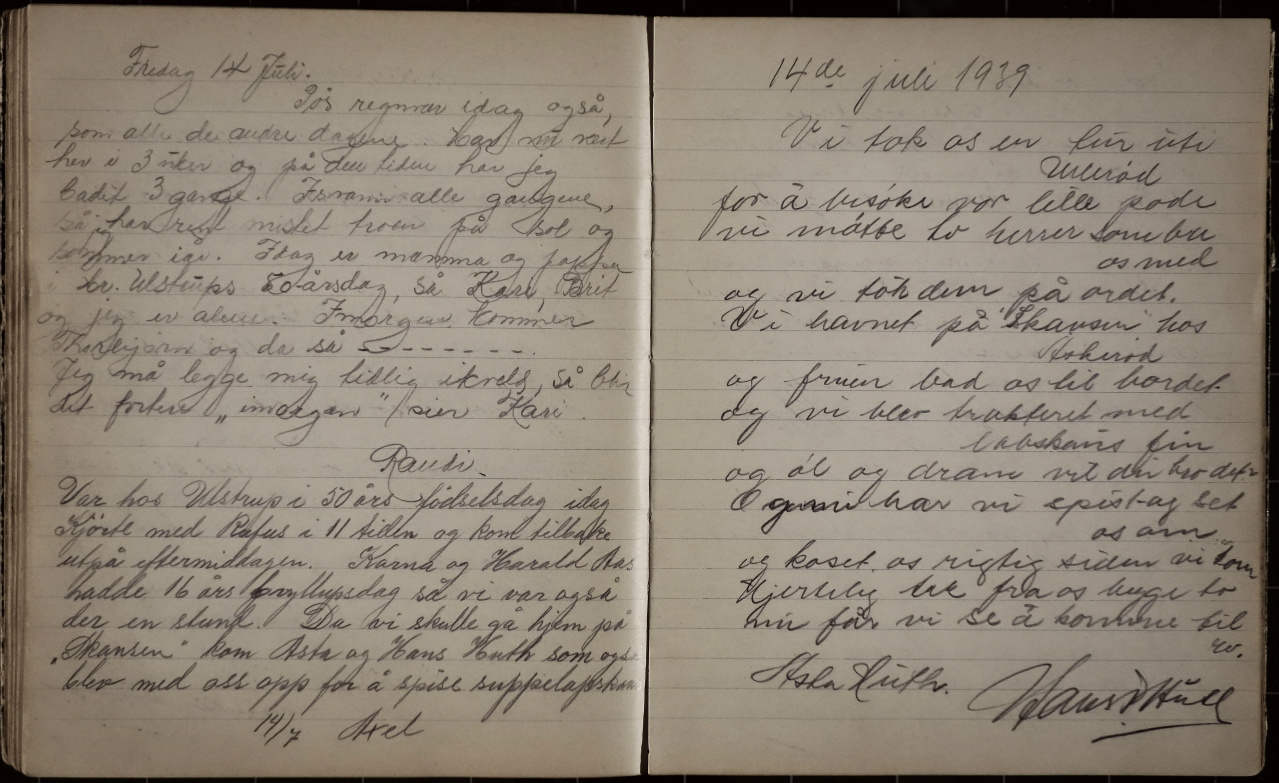 Fredag 14 Juli.
Pøs regnvær idag også,
som alle de andre dagene. Har nu vært
her i 3 uker og på den tiden har jeg
badet 3 gange. Isvann alle gangene,
så har rent mistet troen på sol og
sommer igjen. Idag er mamma og pappa
i hr. Ulstrups 50-årsdag, så Kari, Brit
og jeg er alene. Imorgen kommer
Thorbjørn og da så - - - - - - - -.
Jeg må legge mig tidlig ikveld, så blir
det fortere „imorgen" sier Kari.
Randi.
Var hos Ulstrup i 50 års fødselsdag idag
Kjørte med Rufus i 11 tiden og kom tilbake
utpå eftermiddagen. Karna og Harald Aas
hadde 16 års bryllupsdag så vi var også
der en stund. Da vi skulle gå hjem på
„Skansen" kom Asta og Hans Huth som også
blev med oss opp for å spise suppelapskaus
14/7 Axel
14de juli 1939
Vi tok os en tur uti
Ullerød
for å besøke vor lille pode
vi møtte to herrer som bu
os med
og vi tok dem på ordet.
Vi havnet på "Skansen" hos
Askerød
og fruen bad os til bordet
og vi blev traktert med
labskaus fin
og øl og dram vil du tro det-
Og nu har vi spist og set
os om
og koset os rigtig siden vi kom
Hjertelig tak fra os begge to
nu får vi se å komme til
ro.
Asta Huth.
Hans Huth